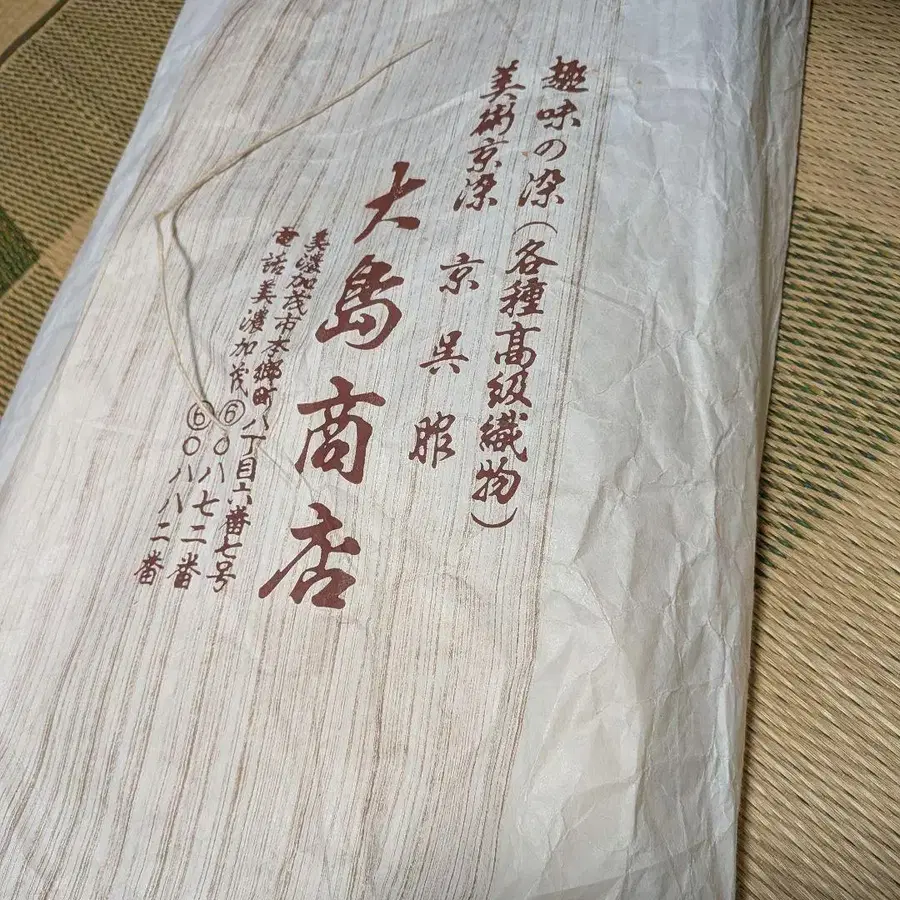 趣味の染(各種高級織物)
美術京染 京呉服
大島商店
美濃加茂市本郷町八丁目六番七号
電話美濃加茂⑥〇八七二番
⑥〇八八二番